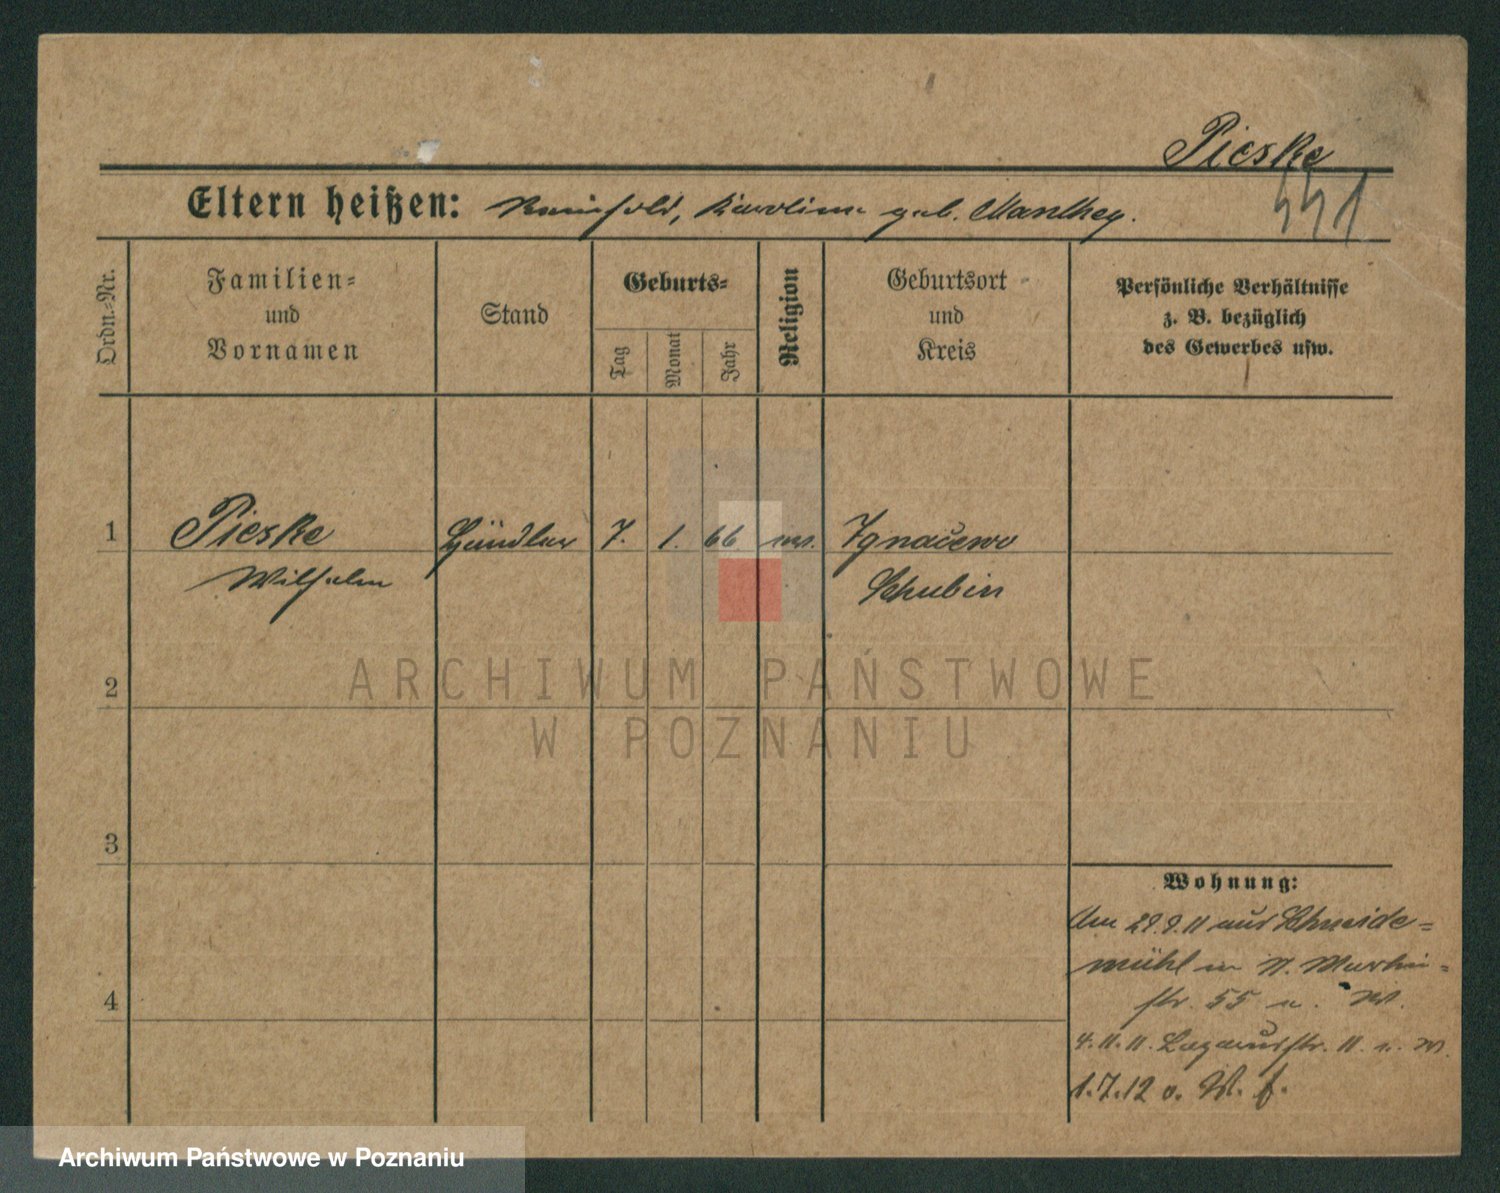 Pieske
Eltern heißen: Reinhold, Karoline geb. Manthey.
551
Ordn.=Nr.
Familien=
und
Vornamen
Stand
Geburts=
Tag
Monat
Jahr
Religion
Geburtsort
und
Kreis
Persönliche Verhältnisse
z. B. bezüglich
des Gewerbes usw.
1 Pieske Händler 7. 1. 66 ev. Ignacewo
Wilhelm Schubin
ARCHIWUM PAŃSTWOWE
2
W POZNANIU
3
Wohnung:
Am 29.9.11 aus Schneide=
mühl n. St. Martin=
str. 55 u. W.
4
4.11.11. Lazarusstr. 11. u. W.
1.7.12 o. W. f.
Archiwum Państwowe w Poznaniu